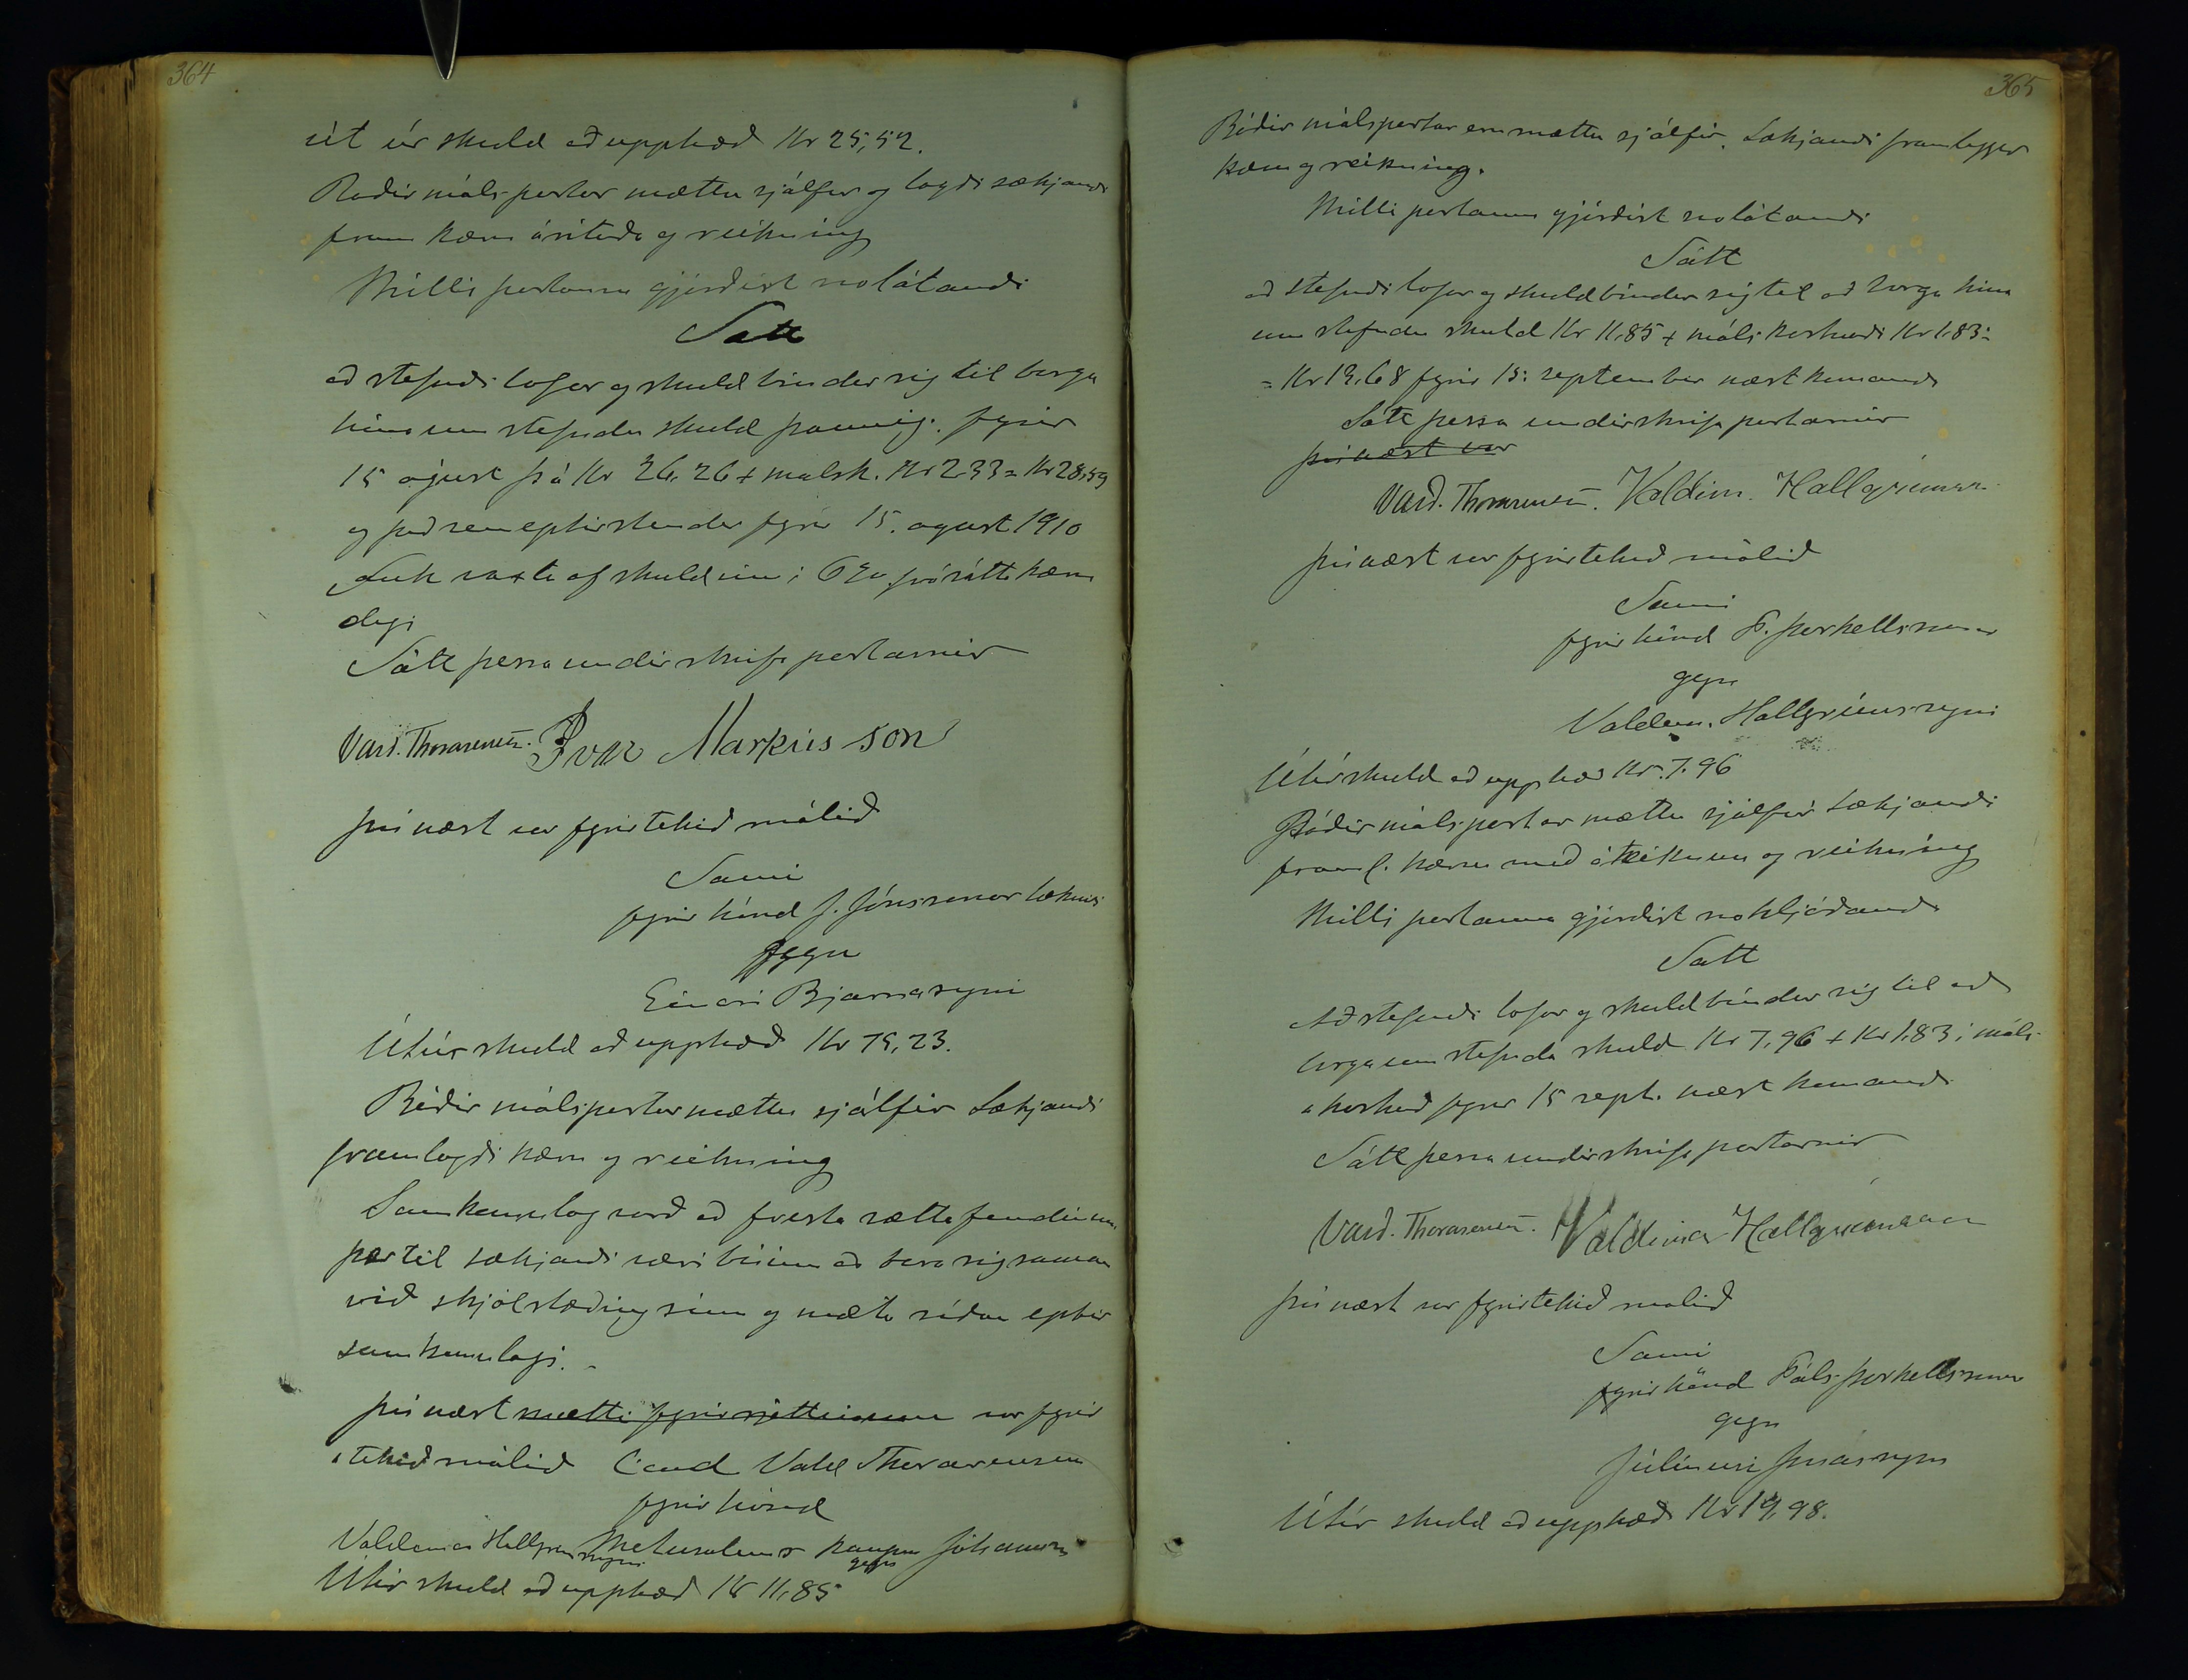 364
út úr skuld að upphæð Kr 25,52.
Báðir málspartar mættu sjálfir og lagði sækjandi
fram kæru áritaða og reikning
Milli partanna gjörðist svolátandi
Sátt
að stefndi lofar og skuldbindur sig til borga
hina umstefndu skuld þannig. fyrir
15 ágúst þ á Kr 26,26 + málsk. Kr 2.33 = Kr 28,59
og það sem eptirstendur fyrir 15. agust 1910
Auk vaxta af skuldinni 6% frá sáttakæru
degi
Sátt þessa undirskrifa partarnir
Vald. Thorarensen. Ivar Markússon
Þvínæst var fyrirtekið málið
Sami
fyrir hönd J. Jónssonar læknis
gegn
Einari Bjarnasyni
Útúr skuld að upphæð Kr 75,23.
Báðir málspartar mættu sjálfir Sækjandi
framlagði kæru og reikning
Samkomulag varð að fresta sáttafundinum
þar til sækjandi væri búinn að bera sig saman
við skjólstæðing sinn og mæta síðan eptir
samkomulagi.
Þvínæst mætti fyrir rjettinum var fyrir
tekið málið Cand Vald Thorarensen
fyrir hönd
Metusalems kaupm Jóhannss
gegn
Valdemar Hallgrímssyni
Útúr skuld að upphæð Kr 11,85
365
Báðir málspartar eru mættir sjálfir. Sækjandi framleggur
kæru og reikning.
Milli partanna gjörðist svolátandi
Sátt
að stefndi lofar og skuldbindur sig til að borga hina
umstefndu skuld Kr 11.85 + málskostnaði Kr 1.83 =
= Kr 13.68 fyrir 15. september næstkomandi
Sátt þessa undirskrifa partarnir
Þvínæst var
Vald. Thorarensen. Valdim. Hallgrimsson
Þvínæst var fyrirtekið málið
Sami
fyrir hönd P. Þorkellssonar
gegn
Valdem. Hallgrímssyni
Útúr skuld að upphæð Kr. 7.96
Báðir málspartar mættu sjálfir Sækjandi
framl. kæru með áteiknun og reikning
Milli partanna gjörðist svohljóðandi
Sátt
Að stefndi lofar og skuldbindur sig til að
borga umstefnda skuld Kr 7,96 + Kr 1.83 í máls
kostnað fyrir 15 sept. næstkomandi
Sátt þessa undirskrifa partarnir
Vald. Thorarensen. Valdimar Hallgrimsson
Þvínæst var fyrirtekið málið
Sami
fyrir hönd Páls Þorkellssonar
gegn
Júlíusi
Útúr skuld að upphæð Kr 19,98.